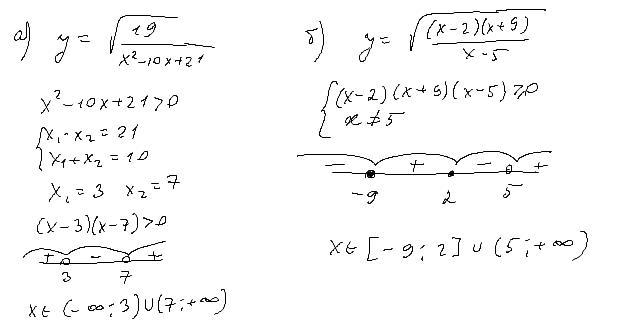 а) y = √(19/(x²-10x+21))
x²-10x+21>0
{x₁·x₂=21
x₁+x₂=10
x₁=3 x₂=7
(x-3)(x-7)>0
+ - +
3 7
x∈(-∞;3)∪(7;+∞)
б) y = √((x-2)(x+9)/(x-5))
{(x-2)(x+9)(x-5)≥0
x≠5
- + - +
-9 2 5
x∈[-9;2]∪(5;+∞)